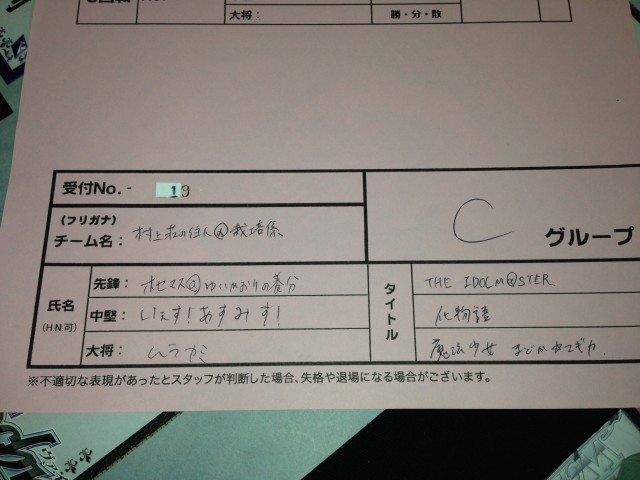 大将：
勝・分・敗
受付No. - 19
(フリガナ)
チーム名： 村上荘の住人@栽培係
C グループ
氏名
(H.N.可)
先鋒： ホセマス@ゆいかおりの養分
中堅： いえす!あすみす!
大将：
タイトル
THE IDOLM@STER
化物語
魔法少女 まどか☆マギカ
※不適切な表現があったとスタッフが判断した場合、失格や退場になる場合がございます。